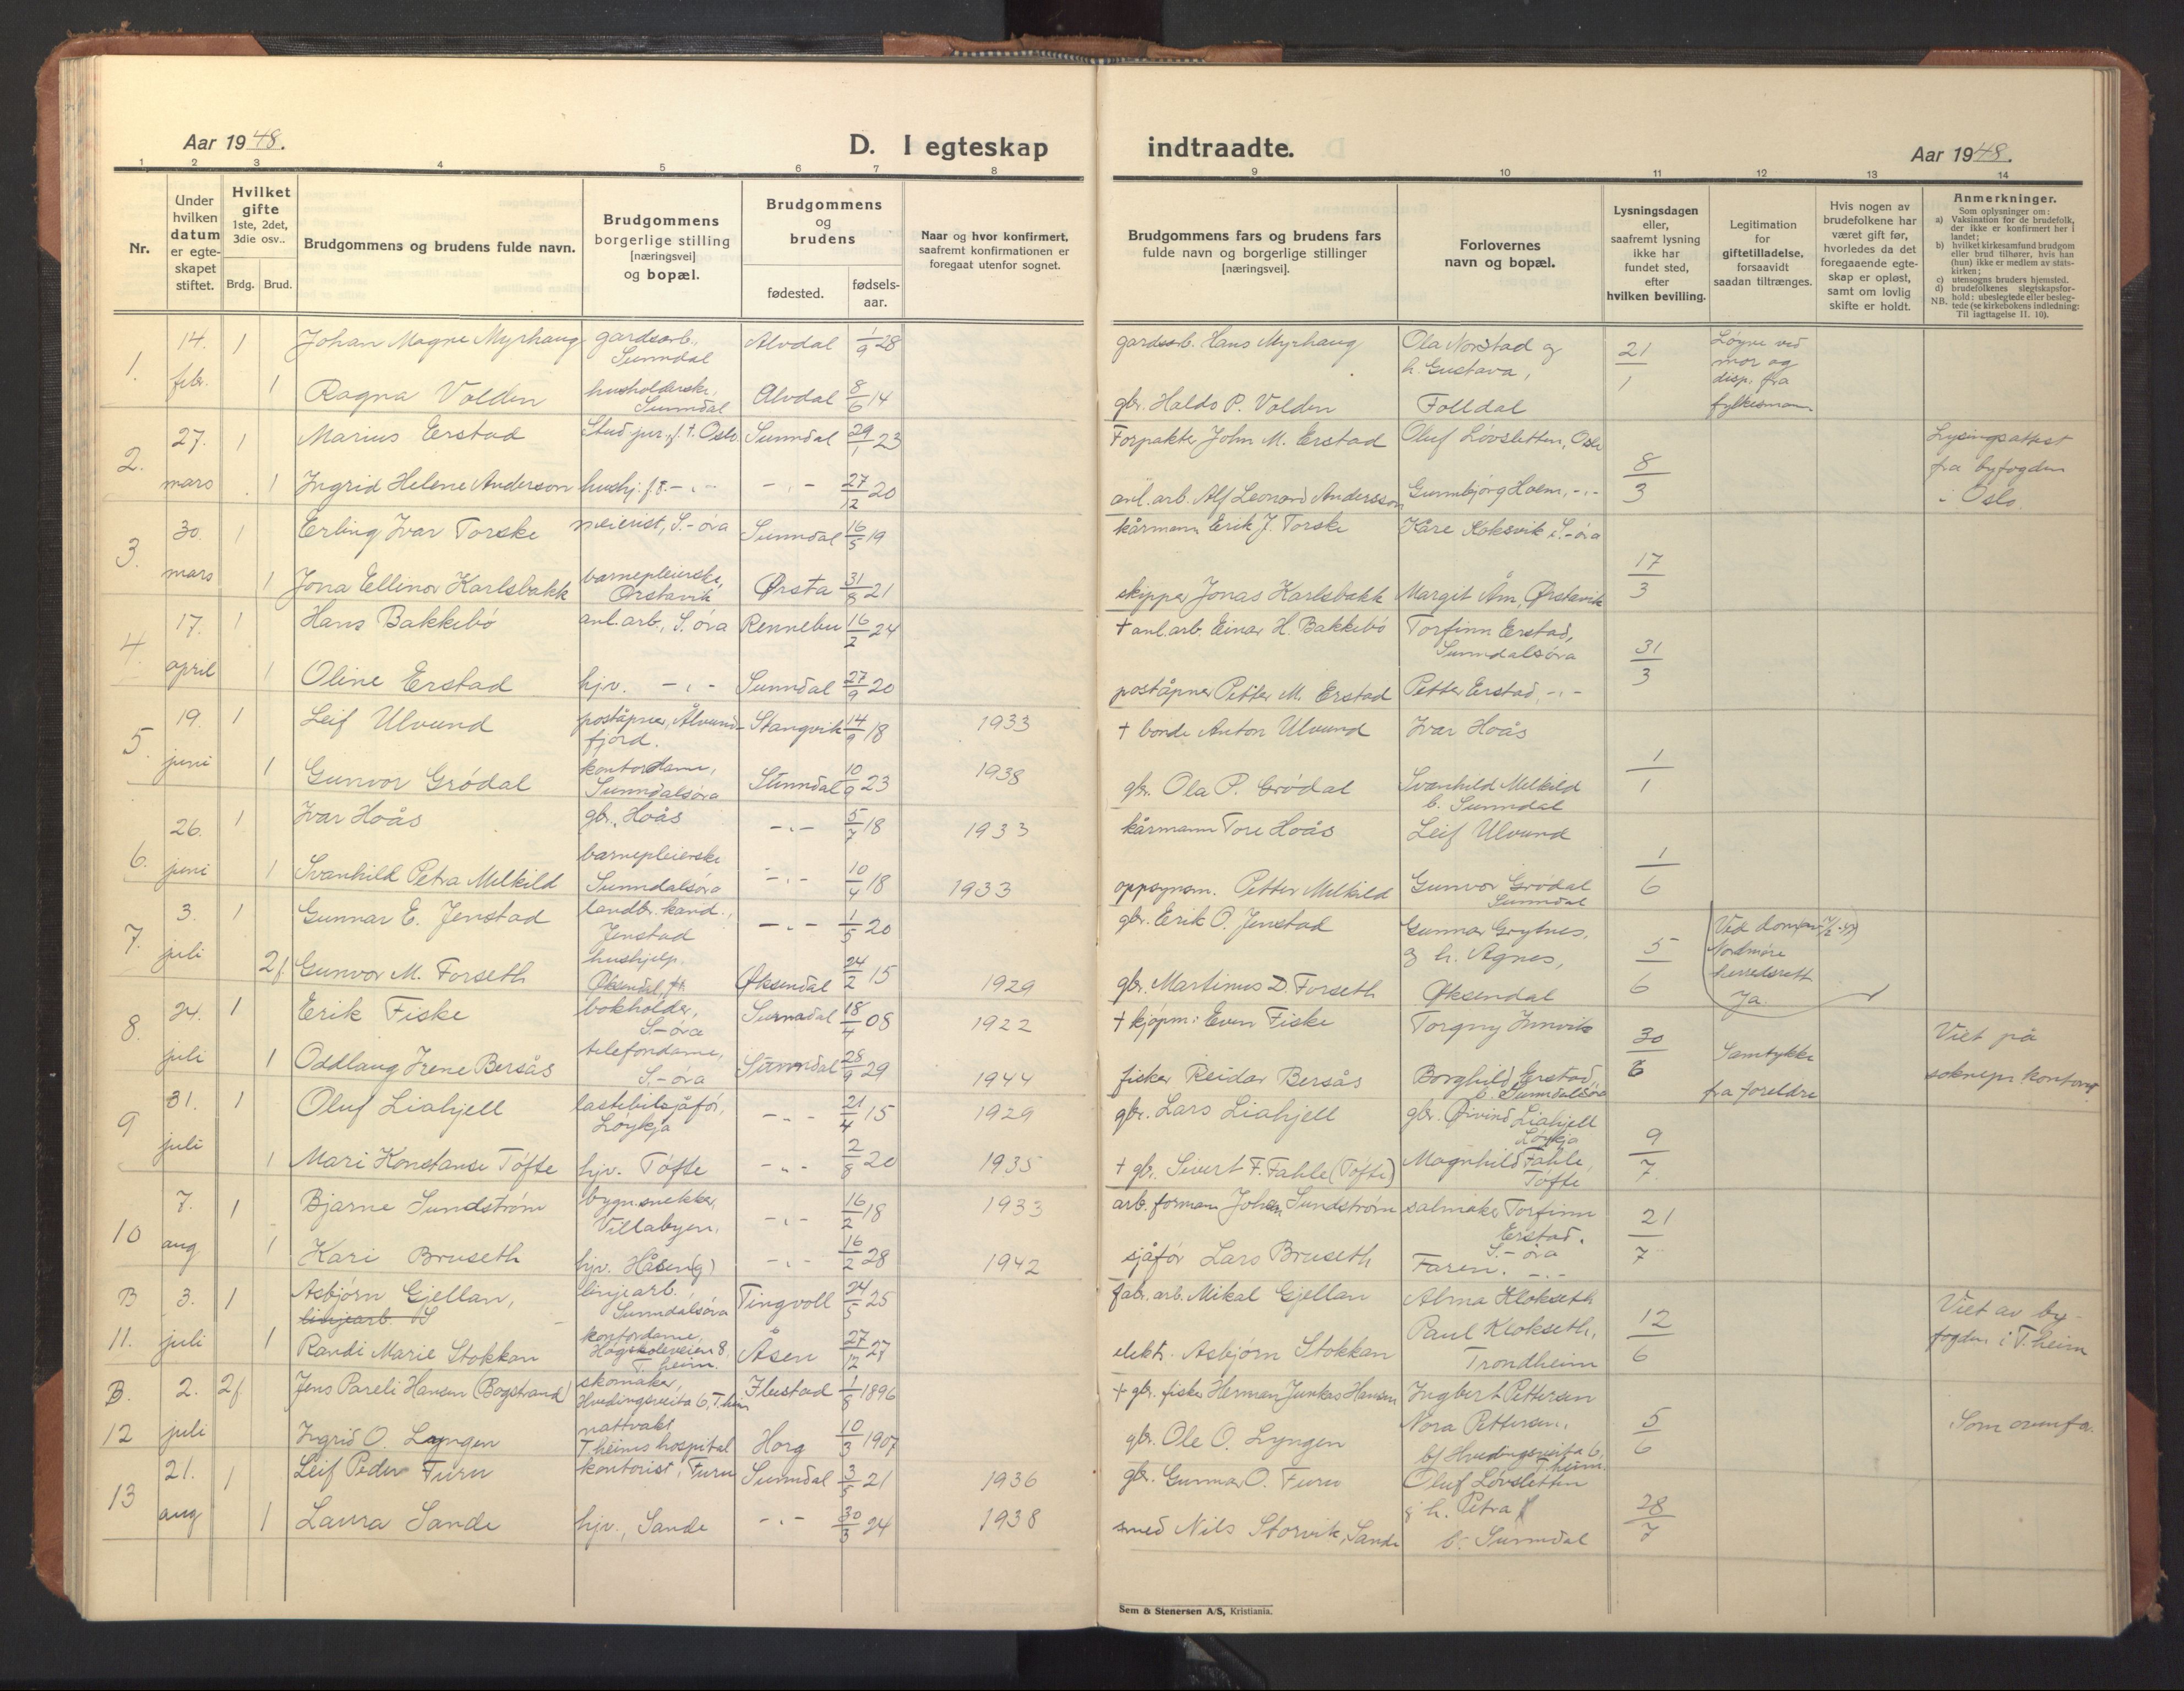 Aar 1948.
D. I egteskap indtraadte.
Aar 1948.
1 2 3 4 5 6 7 8 9 10 11 12 13 14
Nr.
Under hvilken datum er egte-skapet stiftet.
Hvilket gifte 1ste, 2det, 3die osv..
Brdg. Brud.
Brudgommens og brudens fulde navn.
Brudgommens borgerlige stilling [næringsvei] og bopæl.
Brudgommens og brudens
fødested. fødsels-aar.
Naar og hvor konfirmert, saafremt konfirmationen er foregaat utenfor sognet.
Brudgommens fars og brudens fars fulde navn og borgerlige stillinger [næringsvei].
Forlovernes navn og bopæl.
Lysningsdagen eller, saafremt lysning ikke har fundet sted, efter hvilken bevilling.
Legitimation for giftetilladelse, forsaavidt saadan tiltrænges.
Hvis nogen av brudefolkene har været gift før, hvorledes da det foregaaende egte-skap er opløst, samt om lovlig skifte er holdt.
Anmerkninger.
Som oplysninger om:
a) Vaksination for de brudefolk, der ikke er konfirmert her i landet;
b) hvilket kirkesamfund brudgom eller brud tilhører, hvis han (hun) ikke er medlem av stats-kirken;
c) utensogns bruders hjemsted.
d) brudefolkenes slegtskapsfor-hold: ubeslegtede eller besleg-tede (se kirkebokens indledning: Til iagttagelse II. 10).
NB.
1. 14. febr. 1 Johan Magne Myrhaug gardsarb., Sunndal Alvdal 1/9 28 gardsarb. Hans Myrhaug Ola Norstad og h. Gustava, 21/1 Løyve ved mor og disp. fra fylkesmann
1 Ragna Volden husholderske, Sunndal Alvdal 8/6 14 gbr. Haldo P. Volden Folldal
2. 27. mars 1 Marius Erstad Stud jur., f.t. Oslo Sunndal 29/1 23 Forpakter John M. Erstad Oluf Løvsletten, Oslo 8/3 Lysingsattest fra byfogden i Oslo
1 Ingrid Helene Anderson hushj. f.t. -"- -"- 27/12 20 anl. arb. Alf Leonard Andersson Gunnbjørg Hoem, -"-
3. 30. mars 1 Erling Ivar Torske meierist, S.-øra Sunndal 16/5 19 kårmann Erik J. Torske Kåre Koksvik S.-øra 17/3
1 Jona Ellinor Karlsbakk barnepleierske, Ørstavik Ørsta 31/8 21 skipper Jonas Karlsbakk Margit Åm, Ørstavik
4. 17. april 1 Hans Bakkebø anl. arb., S. øra Rennebu 16/2 24 + anl. arb. Einar H. Bakkebø Torfinn Erstad, Sunndalsøra 31/3
1 Oline Erstad hjv. -"- Sunndal 27/9 20 poståpner Petter M. Erstad Petter Erstad, -"-
5. 19. juni 1 Leif Ulvund poståpner, Ålvund-fjord. Stangvik 14/9 18 1933 + bonde Anton Ulvund Ivar Hoås 1/1
1 Gunvor Grødal kontordame, Sunndalsøra Sunndal 10/9 23 1938 gbr. Ola P. Grødal Svanhild Melkild b. Sunndal
6. 26. juni 1 Ivar Hoås gbr., Hoås -"- 5/7 18 1933 kårmann Tore Hoås Leif Ulvund 1/6
1 Svanhild Petra Melkild barnepleierske Sunndalsøra -"- 10/4 18 1933 oppsynsm. Petter Melkild Gunvor Grødal Sunndal
7. 3. juli 1 Gunnar E. Jenstad landbr. kand., Jenstad -"- 1/5 20 gbr. Erik O. Jenstad Gunnar Grytnes, og h. Agnes, 5/6 Ved dom Nordmøre herredsrett Ja
2f Gunvor M. Forseth hushjelp. Øksendal, Øksendal 24/2 15 1929 gbr. Martinus D. Forseth Øksendal
8. 24. juli 1 Erik Fiske bokholder, S.-øra Surnadal 18/4 08 1922 + kjøpm: Even Fiske Torgny Innvik 30/6 Samtykke fra foreldre Viet på sokneprestkontoret
1 Oddlaug Irene Bersås telefondame, S.-øra Sunndal 28/9 29 1944 fisker Reidar Bersås Borghild Erstad, b. Sunndalsøra
9 31. juli 1 Oluf Liahjell lastebilsjåfør, Løykja -"- 21/4 15 1929 gbr. Lars Liahjell gbr. Øivind Liahjell Løykja 9/7.
1 Mari Konstanse Tøfte hjv. Tøfte -"- 2/8 20 1935 + gbr. Sivert F. Fahle (Tøfte) Magnhild Fahle, Tøfte
10 7. aug 1 Bjarne Sundstrøm bygn.snekker, Villabyen, -"- 16/2 18 1933 arb. formann Johan Sundstrøm salmaker Torfinn Erstad. S.-øra 21/7
1 Kari Bruseth hjv. Håsen(g) -"- 16/2 28 1942 sjåfør Lars Bruseth Faren. -"-
B 11. 3. juli 1 Asbjørn Gjellan, linjearb. S linjearb. Sunndalsøra Tingvoll 24/5 25 fabr. arb. Mikal Gjellan Alma Klokseth 12/6 Viet av by-fogden i T.heim
1 Randi Marie Stokkan kontordame, Høgskoleveien 8, T.heim. Åsen 27/12 27 elektr. Asbjørn Stokkan Paul Klokseth, Trondheim
B. 12 2. juli 2f Jens Pareli Hansen (Bogstrand) skomaker, Hvedingsveita 6, T.heim Flustad 1/8 1896 + gbr. fisker Herman Junkas Hansen Ingbert Pettersen 5/6 Som ovenfor.
Ingrid O. Lyngen nattvakt T.heims hospital Horg 10/3 1907 gbr. Ole O. Lyngen Nora Pettersen, b/ Hvedingsveita 6, T.heim.
13 21. aug 1 Leif Peder Furu kontorist, Furu Sunndal 3/5 21 1936 gbr. Gunnar O. Furu Oluf Løvsletten 28/7
1 Laura Sande hjv., Sande -"- 30/3 24 1938 smed Nils Storvik, Sande og h. Petra b. Sunndal
Sem & Stenersen A/S, Kristiania.